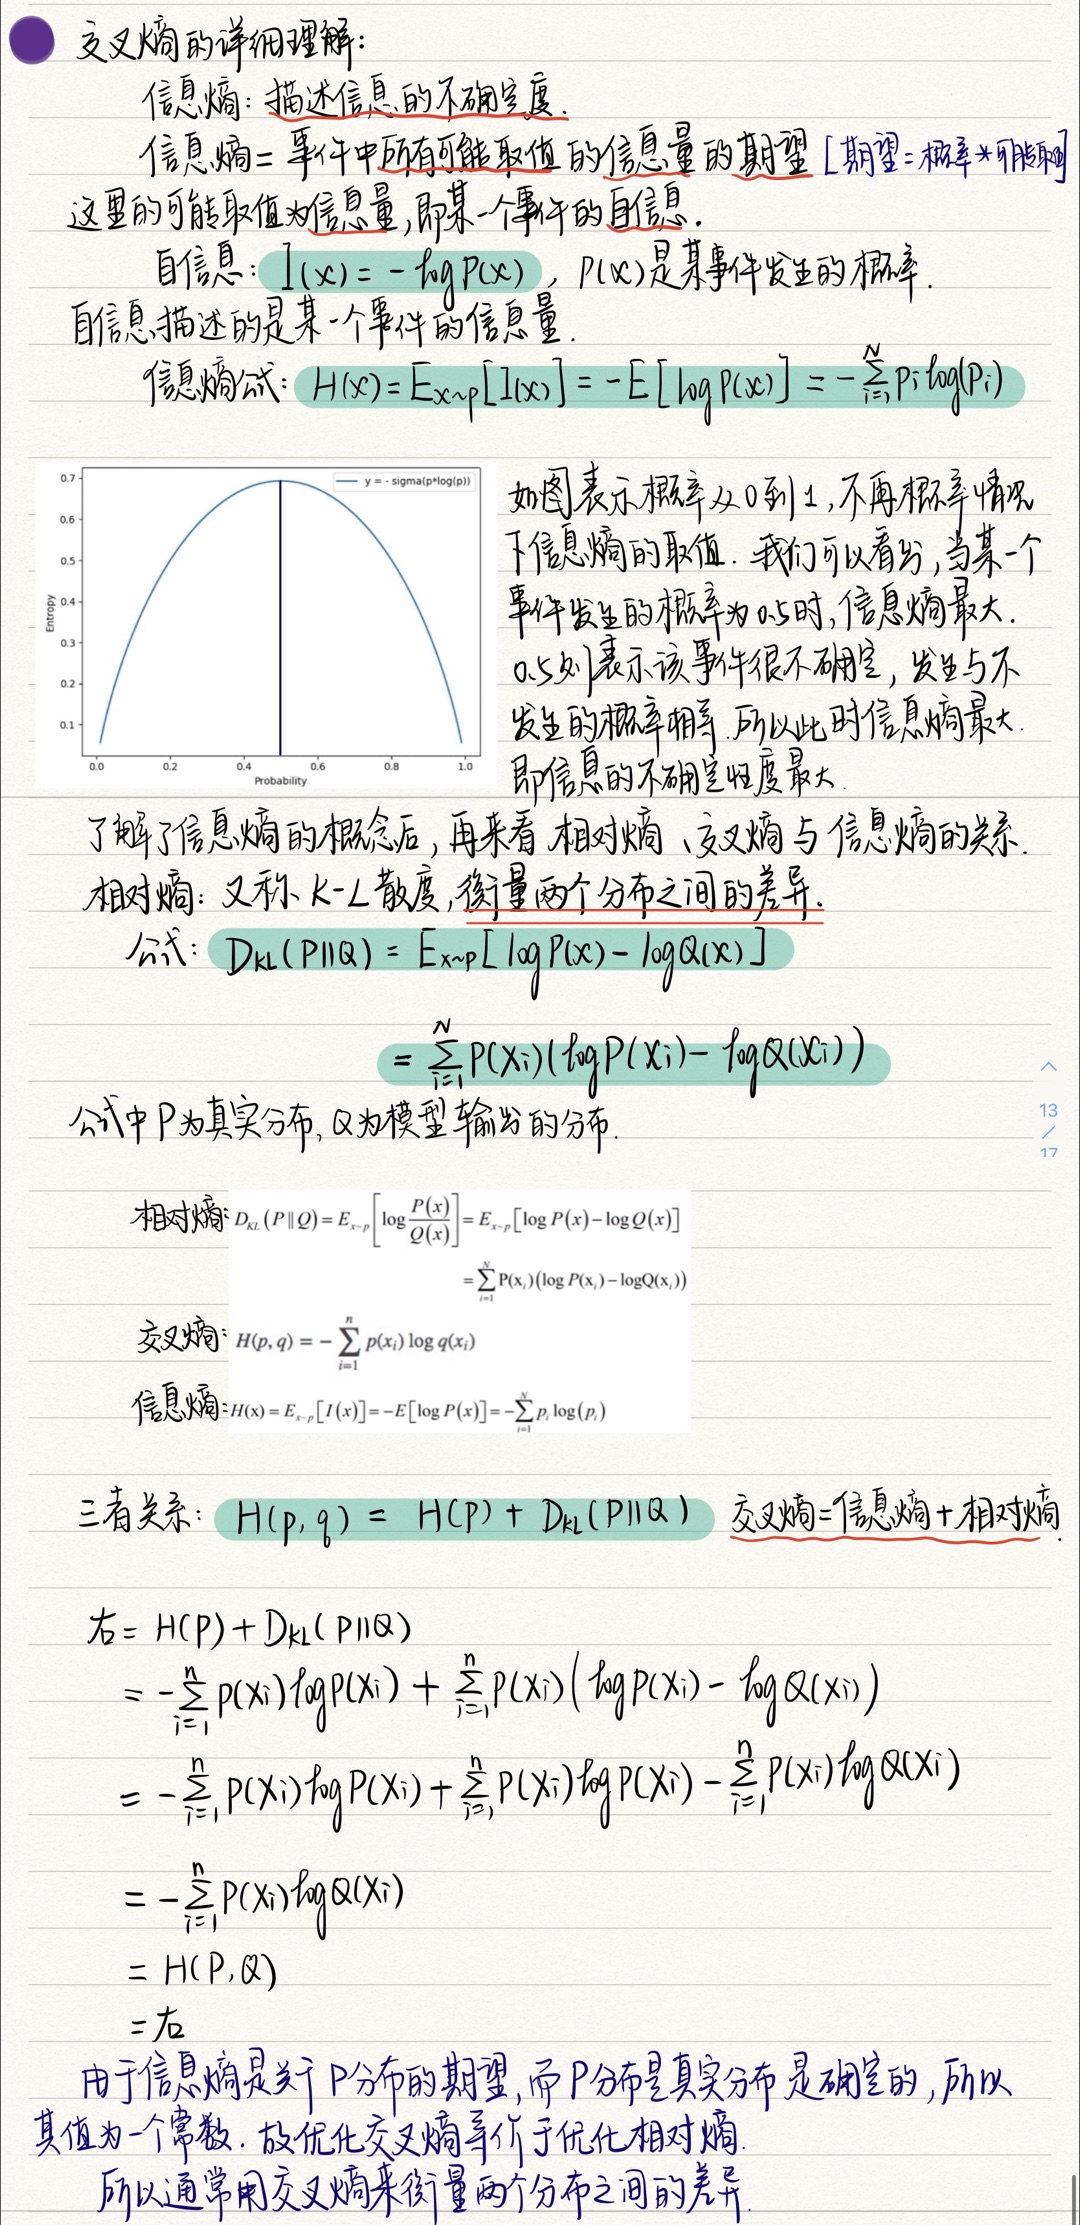 交叉熵的详细理解:
信息熵:描述信息的不确定度.
信息熵=事件中所有可能取值的信息量的期望 [期望=概率*可能取值]
这里的可能取值为信息量,即某一个事件的自信息.
自信息: I(x) = -logP(x), P(x)是某事件发生的概率.
自信息描述的是某一个事件的信息量.
信息熵公式: H(x)=E_{x~p}[I(x)] = -E[logP(x)] = -∑_{i=1}^{N} Pi log(Pi)
0.7
0.6
0.5
0.4
0.3
0.2
0.1
Entropy
y = - sigma(p*log(p))
0.0 0.2 0.4 0.6 0.8 1.0
Probability
如图表示概率从0到1,不再概率情况
下信息熵的取值.我们可以看出,当某一个
事件发生的概率为0.5时,信息熵最大.
0.5则表示该事件很不确定,发生与不
发生的概率相等.所以此时信息熵最大.
即信息的不确定性度最大.
了解了信息熵的概念后,再来看相对熵、交叉熵与信息熵的关系.
相对熵:又称K-L散度,衡量两个分布之间的差异.
公式: D_{KL}(P||Q) = E_{x~p}[logP(x)-logQ(x)]
= ∑_{i=1}^{N} P(Xi)(logP(Xi)-logQ(Xi))
公式中P为真实分布,Q为模型输出的分布.
13
/
17
相对熵: D_{KL}(P||Q)=E_{x~p}[log P(x)/Q(x)]=E_{x~p}[log P(x)-log Q(x)]
=∑_{i=1}^{N} P(x_i)(log P(x_i)-logQ(x_i))
交叉熵: H(p,q) = - ∑_{i=1}^{n} p(x_i) log q(x_i)
信息熵: H(x)=E_{x~p}[I(x)]=-E[log P(x)]=-∑_{i=1}^{N} p_i log(p_i)
三者关系: H(p,q) = H(P)+D_{KL}(P||Q) 交叉熵=信息熵+相对熵.
右= H(P)+D_{KL}(P||Q)
= -∑_{i=1}^{n} P(Xi)logP(Xi) + ∑_{i=1}^{n} P(Xi)(logP(Xi)-logQ(Xi))
= -∑_{i=1}^{n} P(Xi)logP(Xi)+∑_{i=1}^{n} P(Xi)logP(Xi)-∑_{i=1}^{n} P(Xi)logQ(Xi)
= -∑_{i=1}^{n} P(Xi)logQ(Xi)
= H(P,Q)
=右
由于信息熵是关于P分布的期望,而P分布是真实分布是确定的,所以
其值为一个常数.故优化交叉熵等价于优化相对熵.
所以通常用交叉熵来衡量两个分布之间的差异.